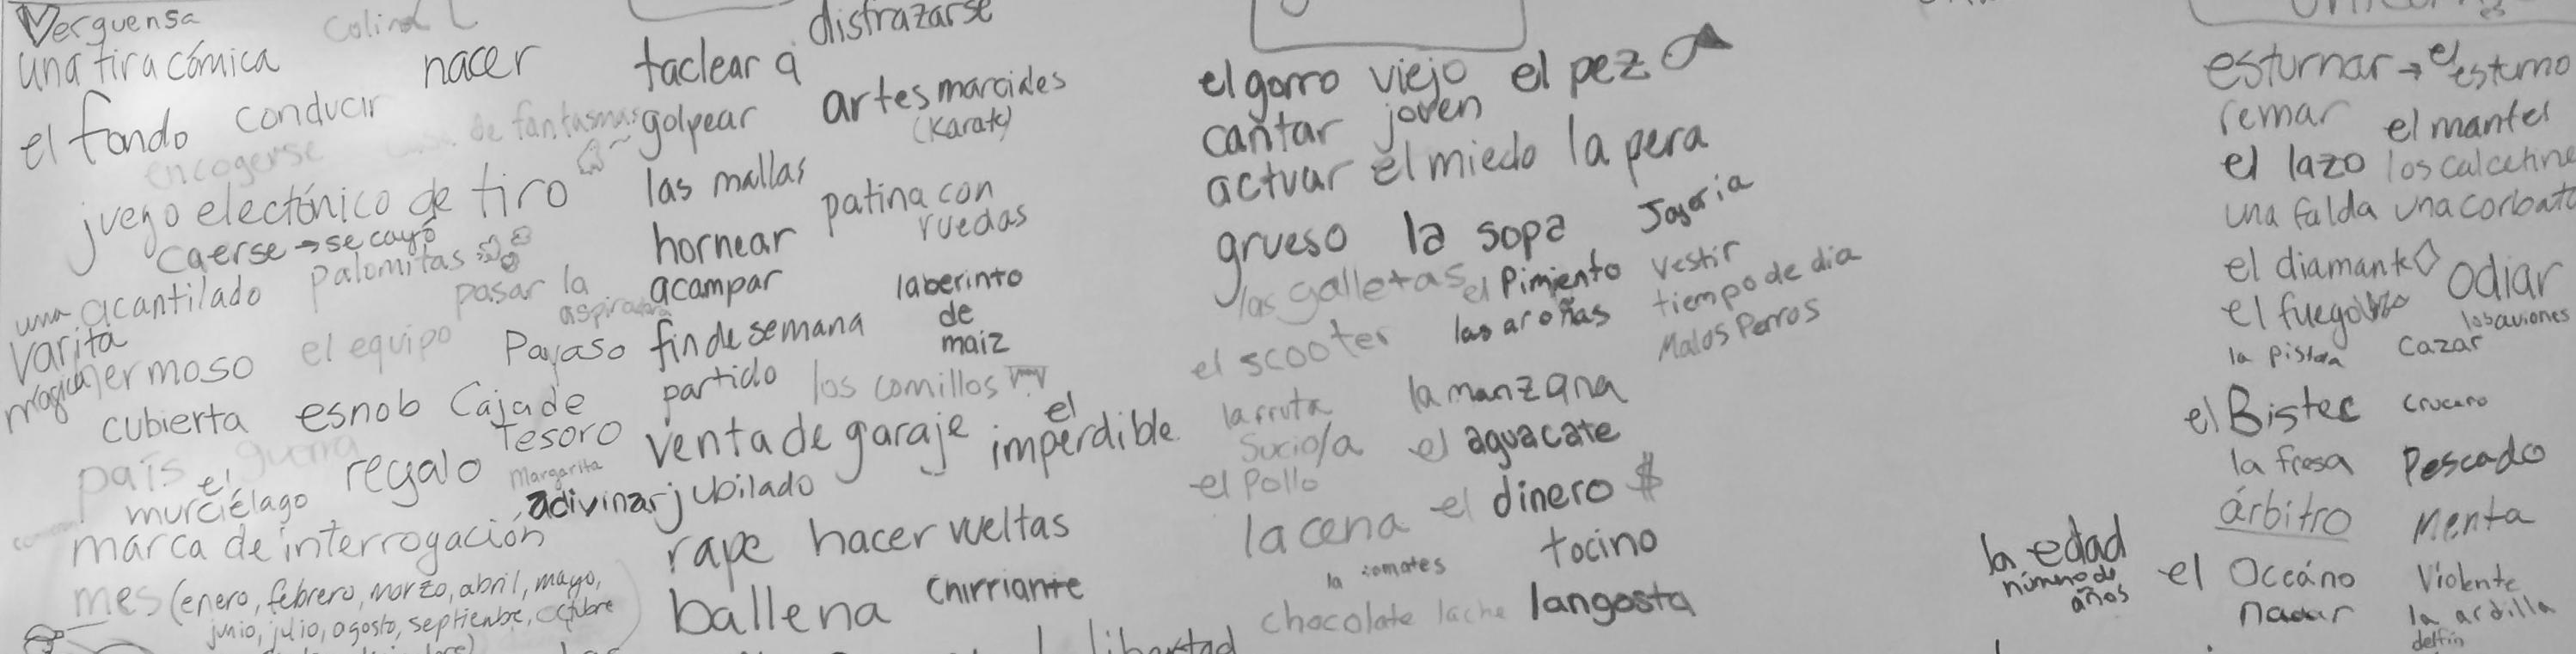 Verguensa
una tira cómica
nacer
el fondo conducir
encogerse
de fantasmas
juego electónico de tiro
caerse → se cayó
palomitas
una acantilado
pasar la
aspiradora
varita
magica
hermoso
el equipo
Payaso
cubierta esnob Caja de
Tesoro
país guerra
el
murciélago
regalo
Margarita
adivinar
marca de interrogación
mes (enero, febrero, marzo, abril, mayo,
junio, julio, agosto, septienbre, octubre
disfrazarse
taclear a
golpear
artes marciales
(Karate)
las mallas
patina con
ruedas
hornear
acampar
laberinto
de
maiz
fin de semana
partido los comillos
venta de garaje
el
imperdible
jubilado
rape hacer vueltas
ballena chirriante
libertad
el gorro viejo el pez
cantar joven
actuar el miedo la pera
grueso la sopa
las galletas el Pimiento vestir
el scooter las arañas tiempo de dia
Malos Perros
la fruta la manzana
Sucio/a el aguacate
el pollo
la cena el dinero $
tocino
chocolate langosta
esturnar → el esturno
remar el mantel
el lazo los calcetine
una falda una corbata
el diamante odiar
el fuego los aviones
la pistola cazar
el Bistec crucero
la fresa Pescado
árbitro Menta
la edad
número de
años
el Oceáno Violente
nadar la ardilla
delfin